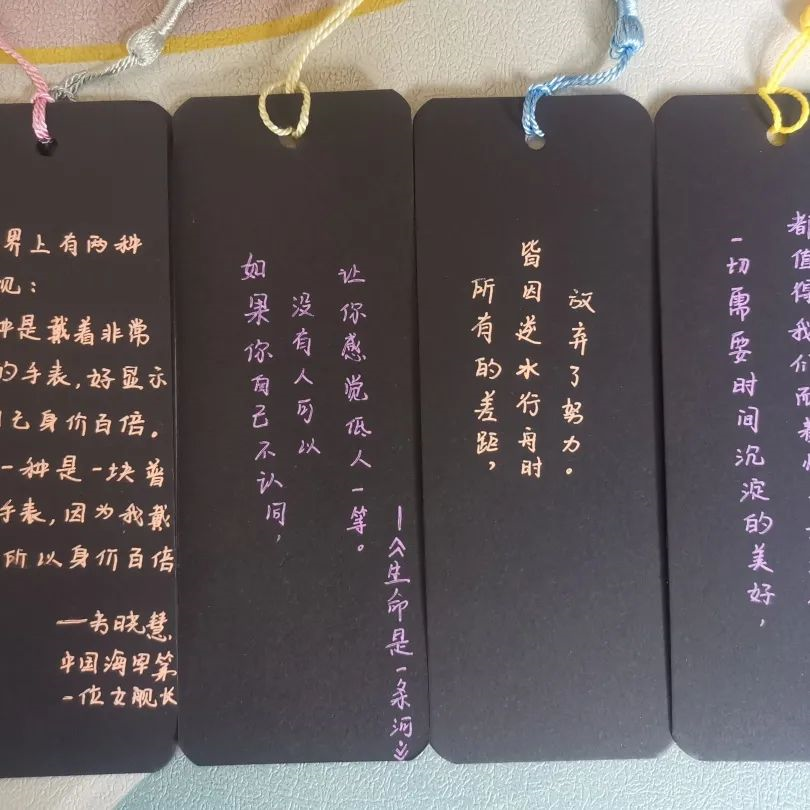 界上有两种
观:
种是戴着非常
的手表,好显示
自己身价百倍。
一种是一块普
手表,因为我戴
所以身价百倍
——韦晓慧
中国海军第
一位女舰长
如果你自己不认同,
没有人可以
让你感觉低人一等。
—《生命是一条河》
所有的差距,
皆因逆水行舟时
放弃了努力。
一切需要时间沉淀的美好,
都值得我们